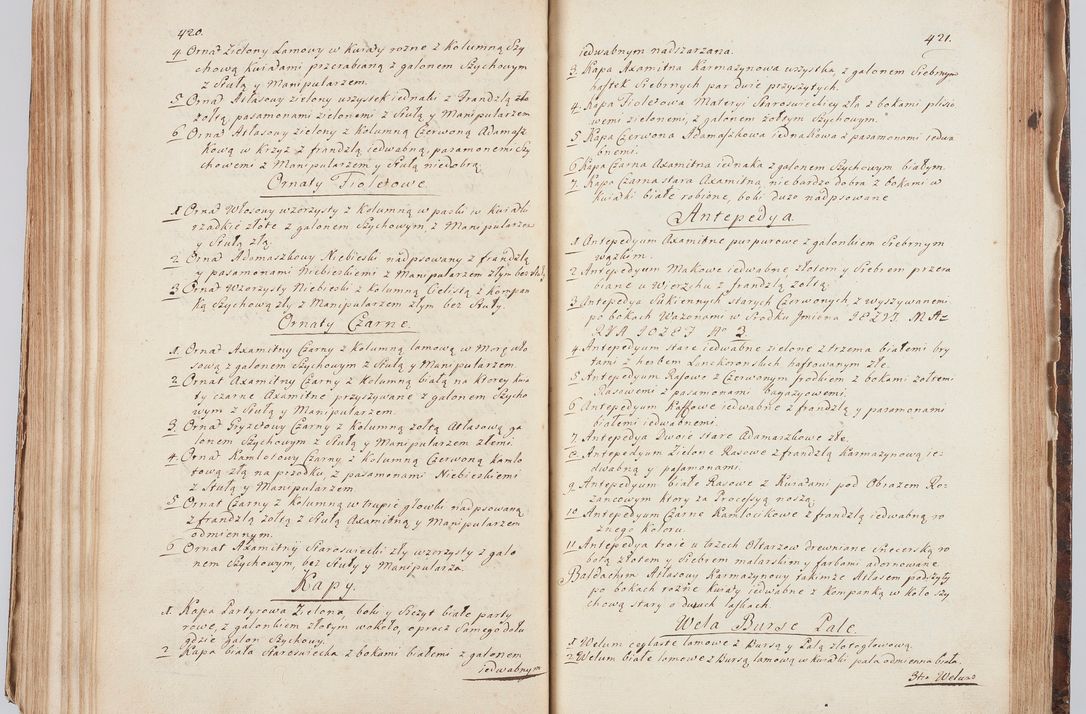 420.
4 Ornat Zielony Lamowy w Kwiaty rozne z Kolumną Szy
chową Kwiatami przerabianą z galonem Szychowym
z Stułą y Manipularzem.
5 Ornat Atlasowy zielony wszystek iednaki z Frandzlą
żołtą pasamonami zielonemi z Stułą y Manipularzem
6 Ornat Atlasowy zielony z Kolumną Czerwoną Adamasz
kową w Krzyż z frandzlą iedwabną, paramonemi Szy
chowemi z Manipularzem y Stułą niedobrą.
Ornaty Fioletowe.
1 Ornat Włosowy wzorzysty z Kolumną w paski w Kwiatki
rzadkie złote z galonem Szychowym, z Manipularzem
y Stułą złą.
2 Ornat Adamaszkowy Niebieski nadpsowany z frandzlą
y pasamonami Niebieskiemi z Manipularzem złym bez Stuły
3 Ornat Wzorzysty Niebieski z Kolumną Celistą z Kompan
ką Szychową zły z Manipularzem złym bez Stuły.
Ornaty Czarne.
1. Ornat Axamitny Czarny z Kolumną lamową w Morę
sową z galonem Szychowym z Stułą y Manipularzem.
2 Ornat Axamitny Czarny z Kolumną białą na ktorey Kwia
ty czarne Axamitne przyszywane z galonem Szycho
wym z Stułą y Manipularzem.
3. Ornat Gryzetowy Czarny z Kolumną żołtą Atlasową ga
lonem Szychowym z Stułą y Manipularzem złemi.
4. Ornat Kamlotowy Czarny z Kolumną Czerwoną kamlo
tową złą na przodku, z pasamonami Niebieskiemi
z Stułą y Manipularzem
5 Ornat Czarny z Kolumną w trupie głowki nadpsowaną
z frandzlą żołtą z Stułą Axamitną y Manipularzem
odmiennym.
6 Ornat Axamitny Staroswiecki zły wzorzysty z galo
nem Szychowym, bez Stuły y Manipularza.
Kapy.
1. Kapa Partyrowa Zielona, boki y Szczyt białe party
rowe, z galonkiem złotym wokoło, oprocz Samego dołu
gdzie galon Szychowy.
2 Kapa biała Staroswiecka z bokami białemi z galonem
iedwabnym
421.
iedwabnym nadszarzana.
3 Kapa Axamitna Karmazynowa wszystka, z galonem Srebrnym
haftek Srebrnych par dwie przyszytych.
4. Kapa Fioletowa Materyi Staroswieckiey zła z bokami plisio
wemi zielonemi, z galonem żołtym Szychowym.
5 Kapa Czerwona Adamaszkowa iednakowa z pasamonami iedwa
bnemi.
6 Kapa Czarna Axamitna iednaka z galonem Szychowym białym.
7. Kapa Czarna stara Axamitna, nie bardzo dobra z bokami w
Kwiatki białe robione, boki dużo nadpsowane
Antepedya.
1 Antepedyum Axamitne purpurowe z galonkiem Srebrnym
wązkim.
2 Antepedyum Makowe iedwabne złotem y Srebrem przera
biane u Wierzchu z frandzlą żołtą.
3 Antepedya Sukiennych starych Czerwonych, z wyszywanemi
po bokach Wazonami w Srodku Jmiona JEZUS MA=
RYA JOZEF No 3
4 Antepedyum stare iedwabne zielone z trzema białemi bry
tami z herbem Lanckoronskich haftowanym złe.
5 Antepedyum Rasowe z Czerwonym srodkiem z bokami żołtemi
Rasowemi z pasamonami bagazyowemi.
6 Antepedyum Kaffowe iedwabne z frandzlą y paramonami
białemi iedwabnemi.
7 Antepedya Dwoie stare Adamaszkowe złe.
8 Antepedyum Zielone Rasowe z frandzlą Karmazynową ie=
dwabną y pasamonami.
9 Antepedyum białe Rasowe z Kwiatami pod Obrazem Ro
zancowym ktory za Processyą noszą;
10 Antepedyum Czarne Kamlocikowe z frandzlą iedwabną ro
znego Koloru.
11 Antepedya troie u trzech Oltarzow drewniane Snecerską ro
botą złotem y Srebrem malarskim y farbami adornowane
Baldachim Atlasowy Karmazynowy takimże Atlasem podszyty
po bokach rożne Kwiaty iedwabne z Kompanką w Koło Szy
chową stary o dwuch laskach.
Wela Burse Pale.
1 Welum ceglaste lamowe z Bursą y Palą złotogłowową.
2 Welum białe lamowe z Bursą lamową w kwiatki pala odmienna biała.
3tio Welum